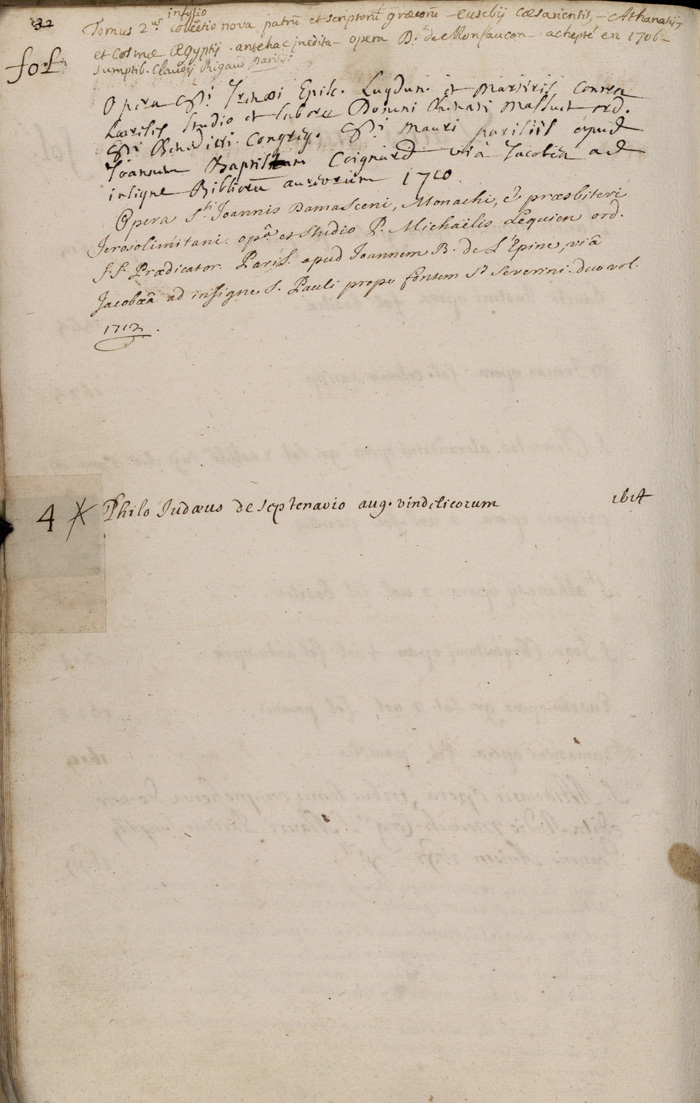 32
infolio
Tomus 2us collectio nova patrũ et scriptorũ græcorũ - Eusebij Cæsariensis, - Athanasij
et Cosmæ Ægyptij. antehac inedita - opera D. de Monfaucon - achepté en 1706 -
fol
sumptib. Claudij Rigaud Parisijs
Opera Sti Irenæi Episc. Lugdun. et Martiris contra
hæreses studio et labore Domni Renati Massuet ord.
Sti Benedicti Congreg. Sti Mauri parisiis apud
Joannem Baptistam Coignard via Jacobæa ad
insigne Bibliorũ aureorum 1710.
Opera Sti Joannis Damasceni, Monachi, & præsbiteri
Jerosolimitani. opâ et Studio P. Michaëlis Lequien ord.
F.F. Prædicator. Paris. apud Joannem B. de L'Epine, viâ
Jacobæâ ad insigne S. Pauli prope fontem Sti Severini. duo vol.
1712.
4 Philo Judæus de septenario aug. vindelicorum 1614